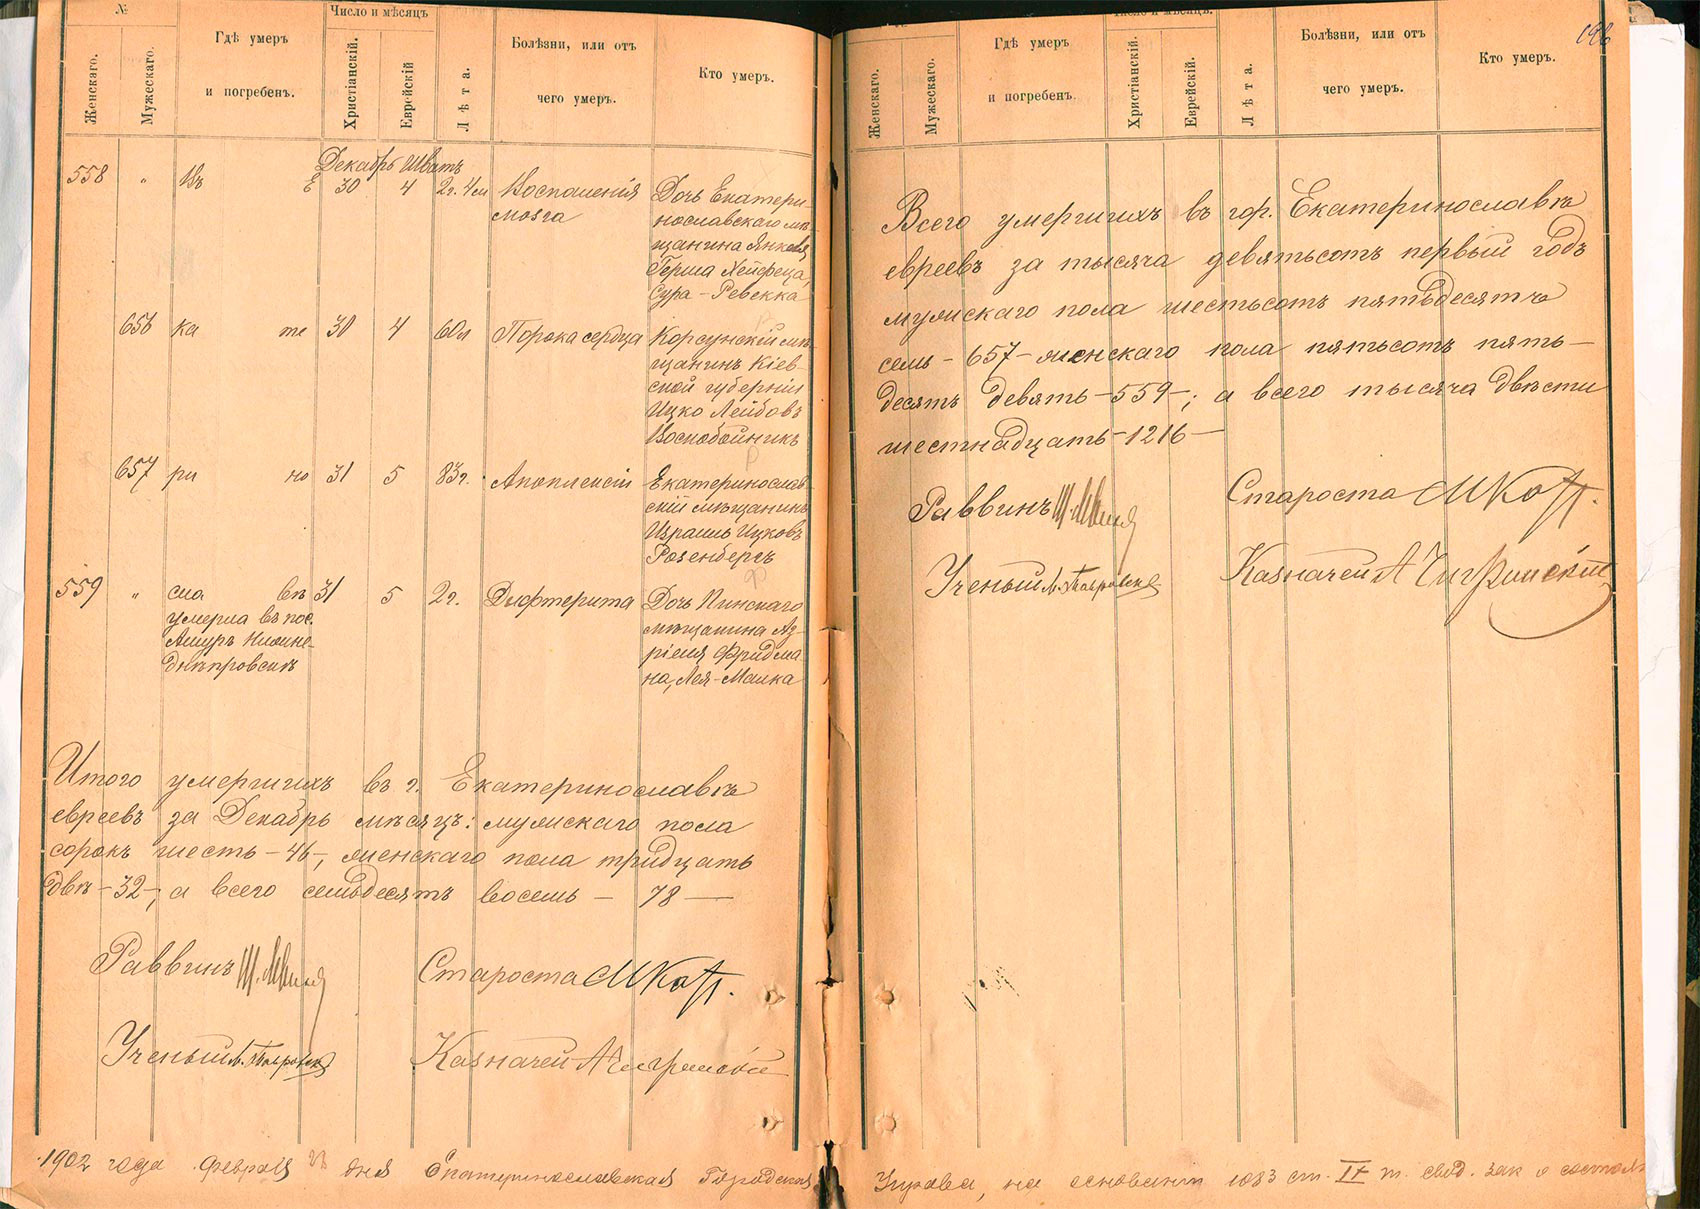 №
Число и мѣсяцъ
Женскаго.
Мужескаго.
Гдѣ умеръ
и погребенъ.
Христіанскій.
Еврейскій
Лѣта.
Болѣзни, или отъ
чего умеръ.
Кто умеръ.
Декабрь Шватъ
558 " Въ Е 30 4 2г. 4м Воспаленія Дочь Екатери
мозга нославскаго мѣ-
щанина Янкеля
Герша Хейфеца,
Сура-Ревекка
656 ка те 30 4 60л Порока сердца Корсунскій мѣ-
щанинъ Кіев-
ской губерніи
Ицко Лейбовъ
Воскобойникъ
657 ри но 31 5 83г. Апоплексіи Екатеринослав-
скій мѣщанинъ
Израиль Ицковъ
Розенбергъ
559 " сла вѣ 31 5 2г. Дифтерита Дочь Пинскаго
умерла въ пос. мѣщанина Аз-
Амуръ Нижне- ріеля Фридма
днѣпровскъ на, Лея-Малка
Итого умершихъ въ г. Екатеринославѣ
евреевъ за Декабрь мѣсяцъ: мужскаго пола
сорокъ шесть -46-, женскаго пола тридцать
двѣ -32-, а всего семьдесятъ восемь - 78 -
Раввинъ Ш. Левинъ Староста М Кац.
Ученый Казначей А Чигринскій
1902 года Февраля дня Екатеринославская Городская
196
Число и мѣсяцъ.
Женскаго.
Мужескаго.
Гдѣ умеръ
и погребенъ.
Христіанскій.
Еврейскій.
Лѣта.
Болѣзни, или отъ
чего умеръ.
Кто умеръ.
Всего умершихъ въ гор. Екатеринославѣ
евреевъ за тысяча девятьсотъ первый годъ
мужскаго пола шестьсотъ пятьдесятъ
семь - 657 - женскаго пола пятьсотъ пять-
десятъ девять - 559 -; а всего тысяча двѣсти
шестнадцать - 1216 -
Раввинъ Ш. Левинъ Староста М Кац.
Ученый Казначей А Чигринскій
Управа, на основаніи 1083 ст. IX т. свод. зак о состоян